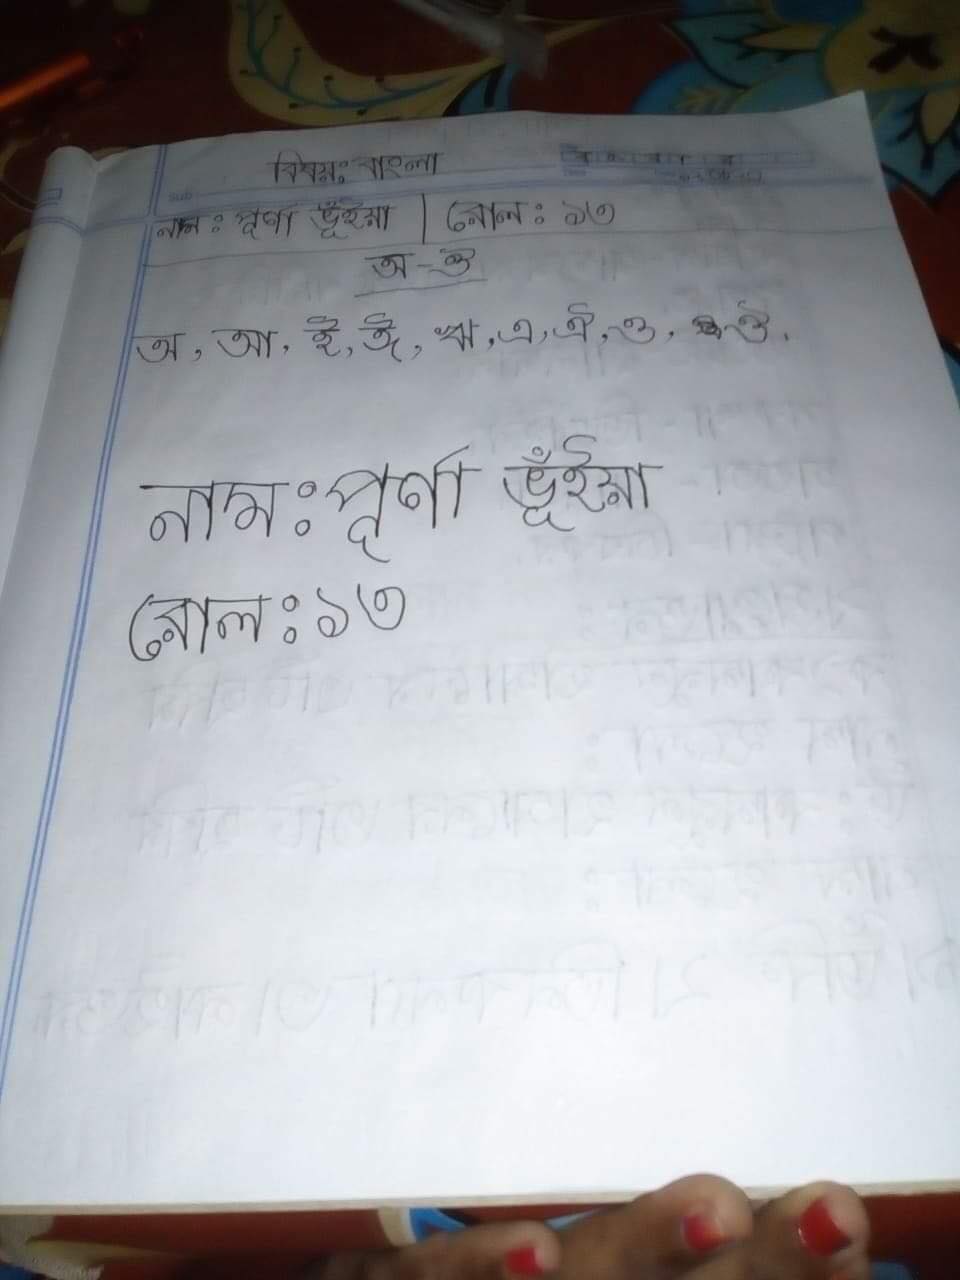 বিষয়ঃ বাংলা
নামঃ পূর্ণা ভূঁইয়া | রোলঃ ১৩
অ-ঔ
অ, আ, ই, ঈ, ঋ, এ, ঐ, ও, ঔ.
নামঃ পূর্ণা ভূঁইয়া
রোলঃ ১৩